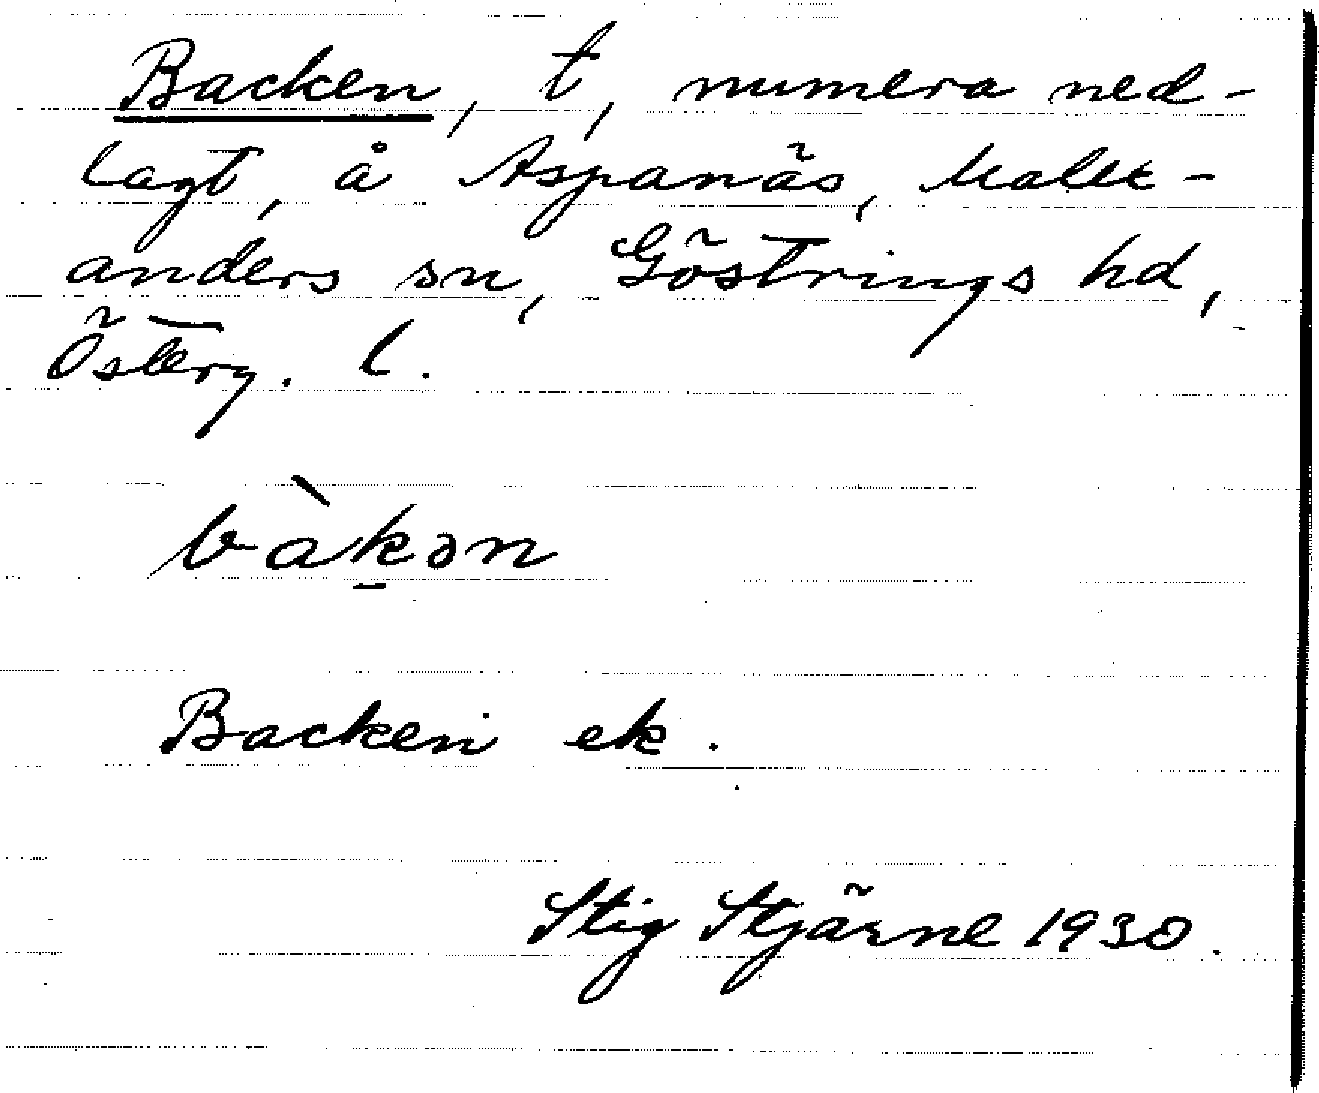 Backen, t, numera ned-
lagt, å Aspanäs, Malex-
anders sn, Göstrings hd,
Österg. l.
bàk̲ən
Backen ek.
Stig Stjärne 1930.